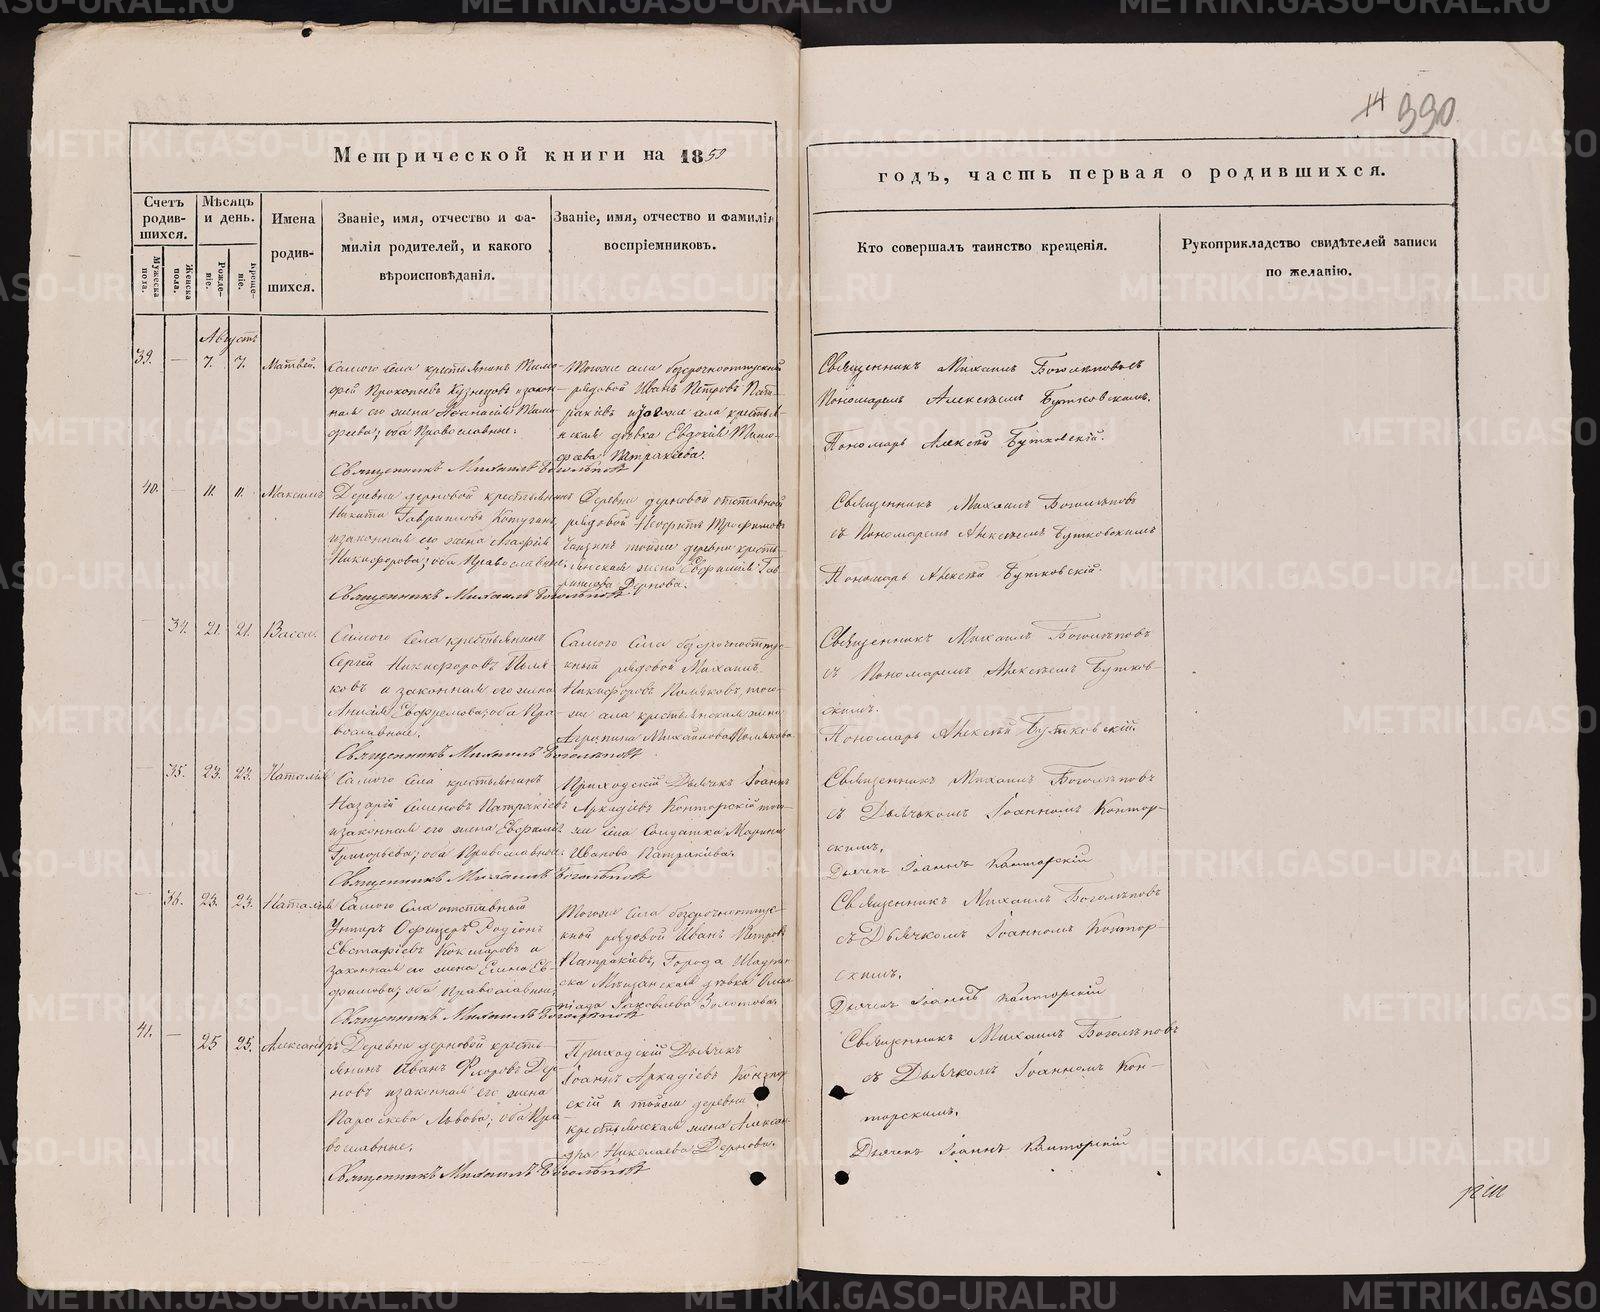 14 990.
Метрической книги на 1859
годъ, часть первая о родившихся.
Счетъ родив-шихся.
Мѣсяцъ и день.
Имена родив-шихся.
Званіе, имя, отчество и фа-
милія родителей, и какого
вѣроисповѣданія.
Званіе, имя, отчество и фамилія
воспріемниковъ.
Кто совершалъ таинство крещенія.
Рукоприкладство свидѣтелей записи
по желанію.
Мужеска пола.
Женска пола.
Рожде-ніе.
Креще-ніе.
Августъ
39. — 7. 7. Матвей.
Самого села крестьянинъ Тимо-
фей Прокопьевъ Кузнецовъ и закон-
ная его жена Афанасія Тимо-
феева; оба Православные.
Священникъ Михаилъ Боголѣповъ
Тогоже села безсрочноотпускный
рядовой Иванъ Петровъ Пат-
ракіевъ и тогоже села крестья-
нская дѣвка Евдокія Тимо-
феева Патракіева.
Священникъ Михаилъ Боголѣповъ съ
Пономаремъ Алексѣемъ Бутковскимъ.
Пономарь Алексѣй Бутковскій.
40. — 11. 11. Максимъ
Деревни дерновой крестьянинъ
Никита Гавриловъ
и законная его жена Агафія
Никифорова; оба Православные.
Священникъ Михаилъ Боголѣповъ.
Деревни дерновой отставной
рядовой Неофитъ Трофимовъ
тойже деревни кресть-
янская жена Евфимія Гав-
рилова Дернова.
Священникъ Михаилъ Боголѣповъ
съ Пономаремъ Алексѣемъ Бутковскимъ
Пономарь Алексѣй Бутковскій.
— 34. 21. 21. Васса.
Самого Села крестьянинъ
Сергій Никифоровъ Поля-
ковъ и законная его жена
Анисія Евфремова; оба Пра-
вославные.
Священникъ Михаилъ Боголѣповъ
Самого Села безсрочноотпус-
кный рядовой Михаилъ
Никифоровъ Поляковъ, того-
же села крестьянская жена
Агрипина Михайлова Полякова.
Священникъ Михаилъ Боголѣповъ
съ Пономаремъ Алексѣемъ Бутков-
скимъ.
Пономарь Алексѣй Бутковскій.
— 35. 23. 23. Наталія
Самого Села крестьянинъ
Назарій Семеновъ Патракіевъ
и законная его жена Евфимія
Григорьева; оба Православные.
Священникъ Михаилъ Боголѣповъ
Приходскій Дьячекъ Іоаннъ
Аркадіевъ Конторскій того-
же села Солдатка Марина
Иванова Патракіева.
Священникъ Михаилъ Боголѣповъ
съ Дьячькомъ Іоанномъ Контор-
скимъ.
Дьячекъ Іоаннъ Конторскій
— 36. 23. 23. Наталія
Самого Села отставной
Унтеръ Офицеръ Родіонъ
Евстафіевъ Кокшаровъ и
законная его жена Елена Ев-
фимова; оба Православные.
Священникъ Михаилъ Боголѣповъ
Тогоже Села безсрочноотпус-
кной рядовой Иванъ Петровъ
Патракіевъ, Города Шадрин-
ска Мѣщанская дѣвка Олим-
піада Іаковлева Золотова.
Священникъ Михаилъ Боголѣповъ
съ Дьячкомъ Іоанномъ Контор-
скимъ.
Дьячекъ Іоаннъ Конторскій
41. — 25 25. Александръ
Деревни дерновой кресть-
янинъ Иванъ Флоровъ Дер-
новъ и законная его жена
Параскева Львова; оба Пра-
вославные.
Священникъ Михаилъ Боголѣповъ
Приходскій Дьячекъ
Іоаннъ Аркадіевъ Контор-
скій и тойже деревни
крестьянская жена Алексан-
дра Николаева Дернова.
Священникъ Михаилъ Боголѣповъ
съ Дьячкомъ Іоанномъ Кон-
торскимъ.
Дьячекъ Іоаннъ Конторскій
METRIKI.GASO-URAL.RU